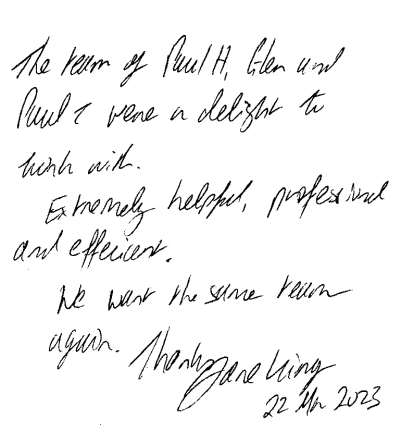 The team of Paul H, Glen and
Paul T were a delight to
work with.
Extremely helpful, professional
and efficient.
We want the same team
again. Thanks Jane King
22 Mar 2023